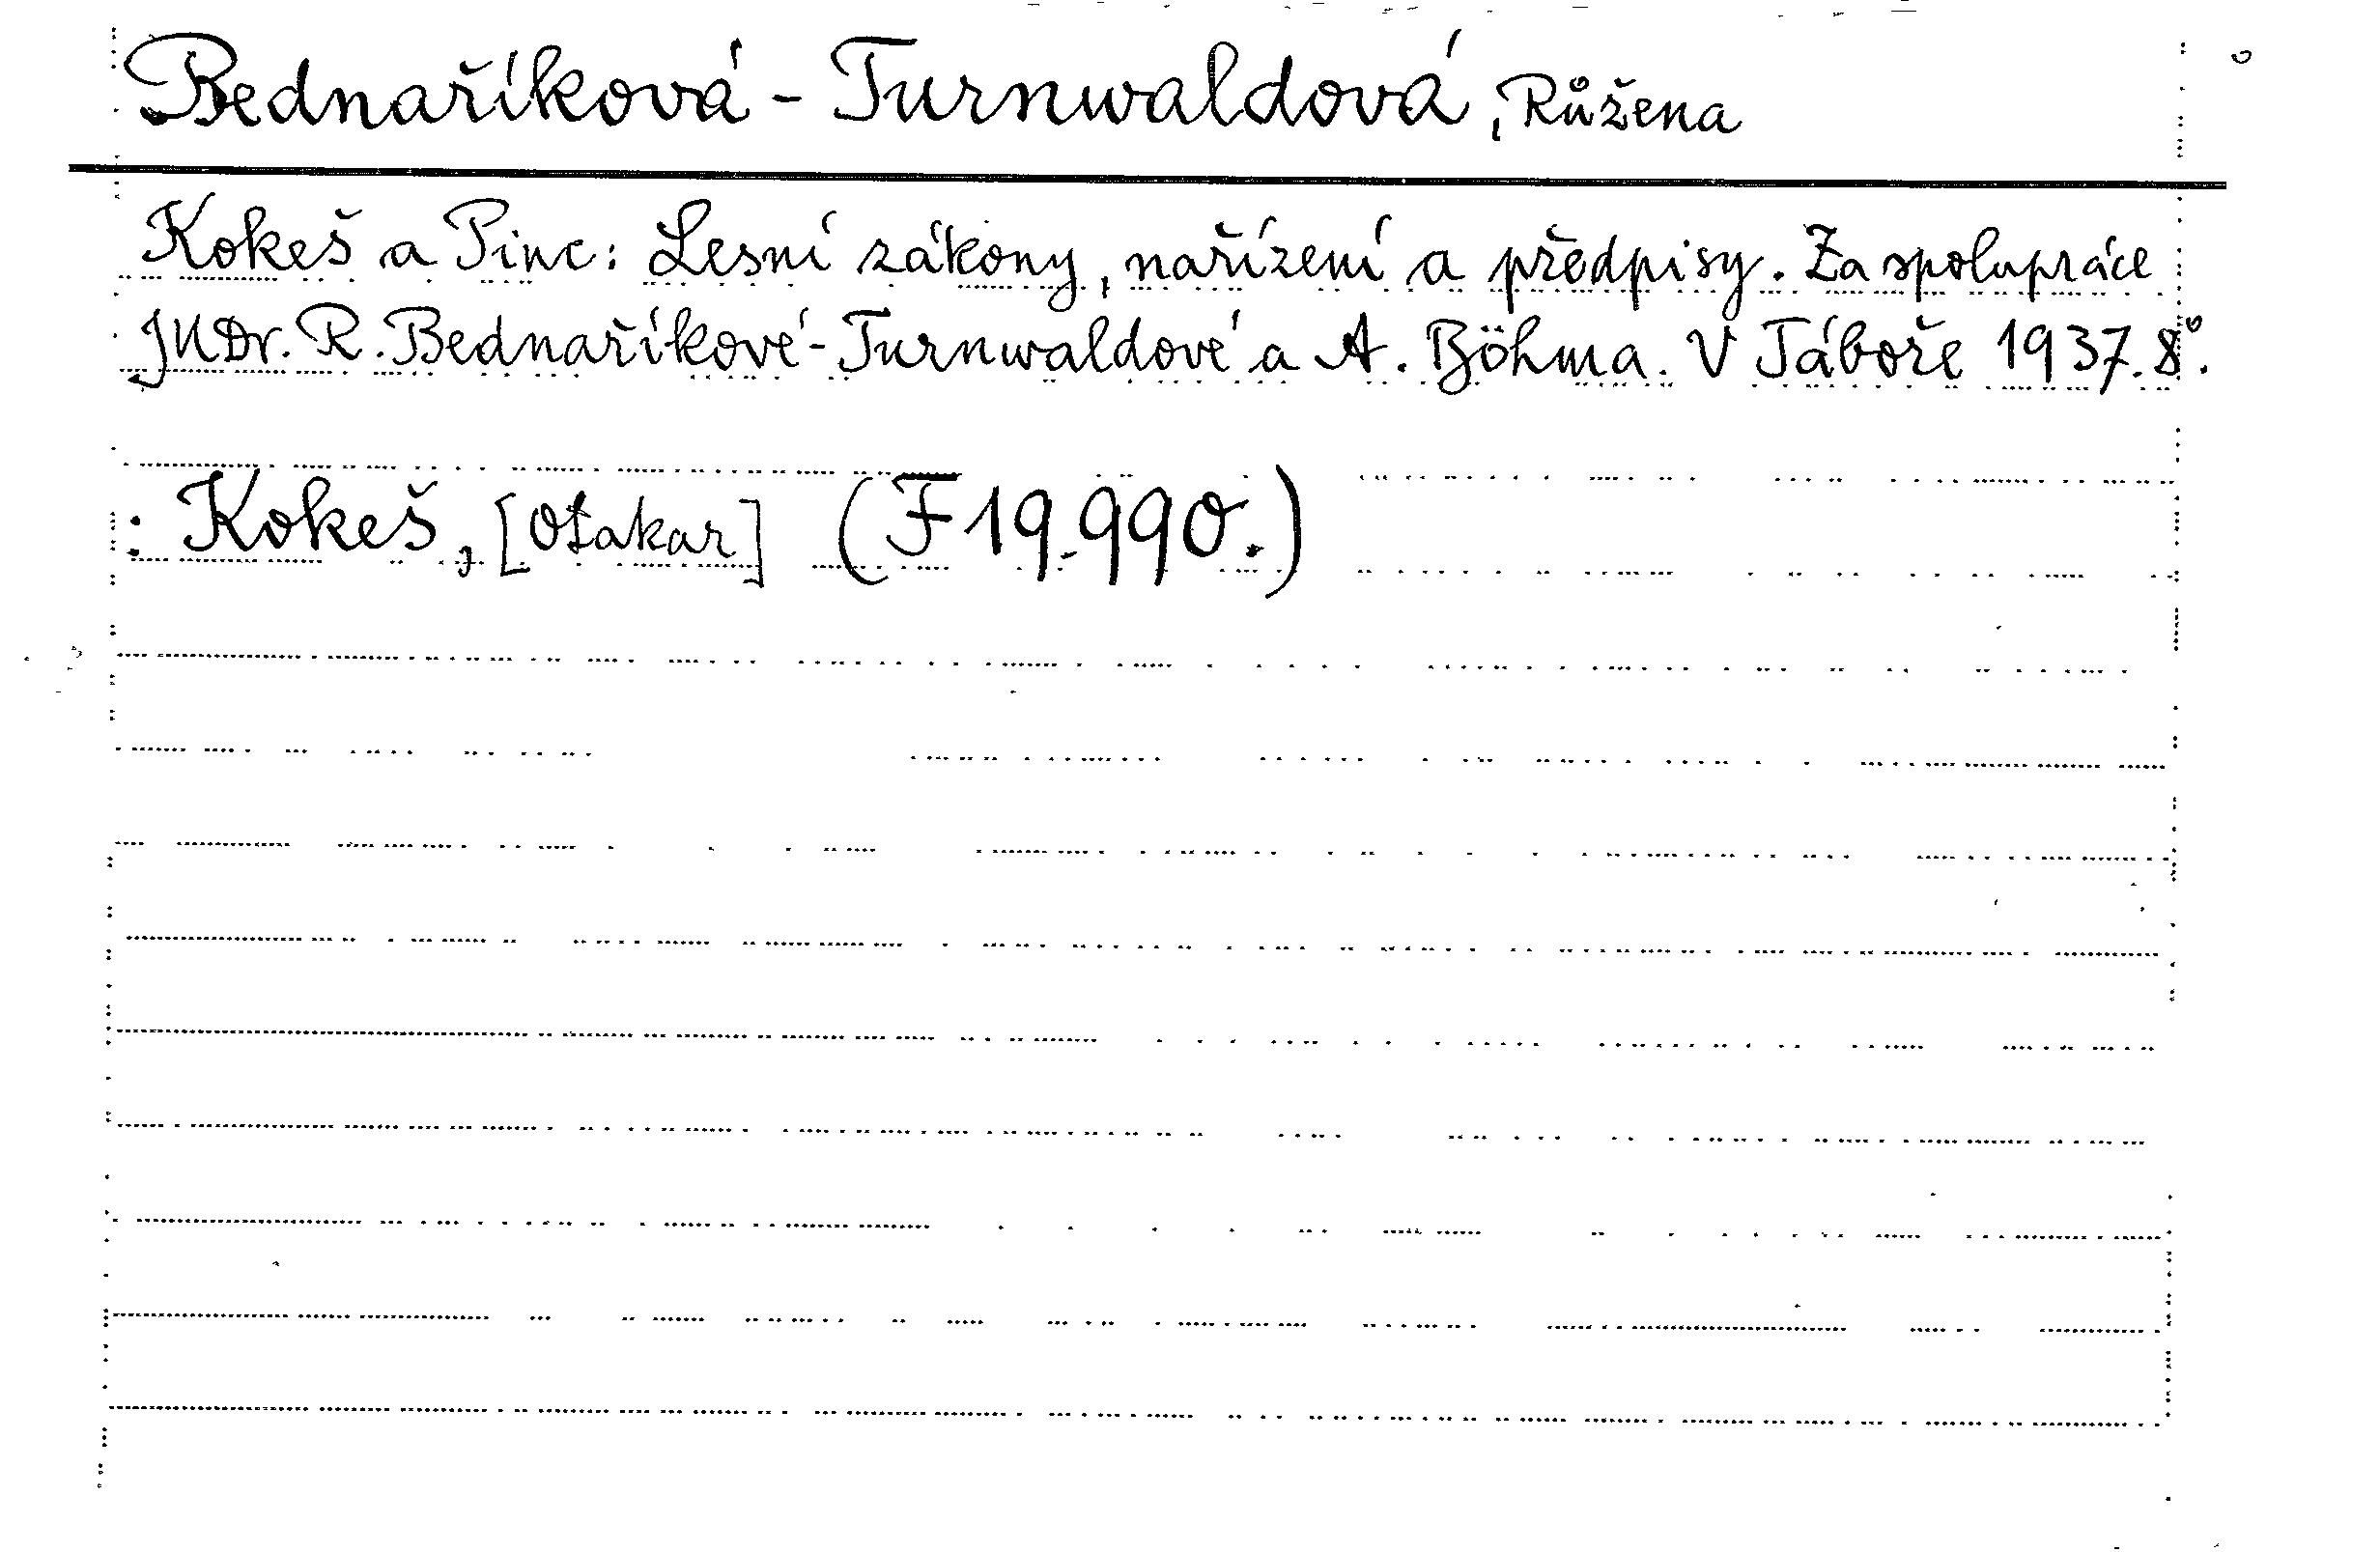 Bednaříková - Turnwaldová, Růžena
Kokeš a Pinc: Lesní zákony, nařízení a předpisy. Za spolupráce
JUDr. R. Bednaříkové-Turnwaldové a A. Böhma. V Táboře 1937. 8°.
: Kokeš, [Otakar] (F 19.990.)